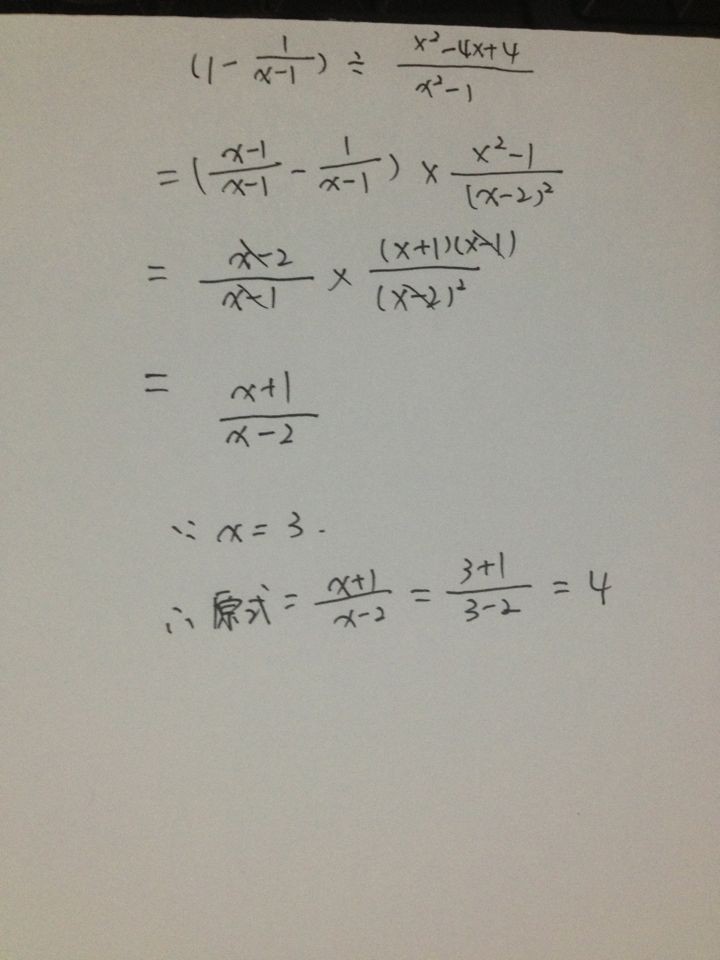 (1 - 1/(x-1)) ÷ (x²-4x+4)/(x²-1)
= ((x-1)/(x-1) - 1/(x-1)) × (x²-1)/(x-2)²
= (x-2)/(x-1) × (x+1)(x-1)/(x-2)²
= (x+1)/(x-2)
∵ x = 3.
∴ 原式 = (x+1)/(x-2) = (3+1)/(3-2) = 4